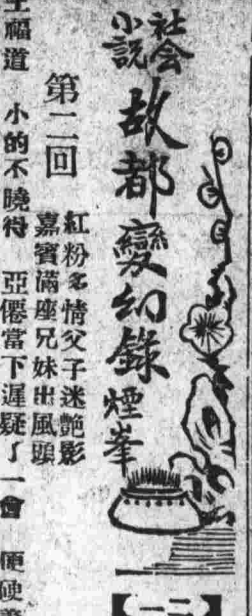 社会
小說
故都變幻錄 煙峯
【二一】
第二回
紅粉多情父子迷艷影
嘉賓滿座兄妹出風頭
福道 小的不曉得 亞僊當下遲疑了一會 便硬